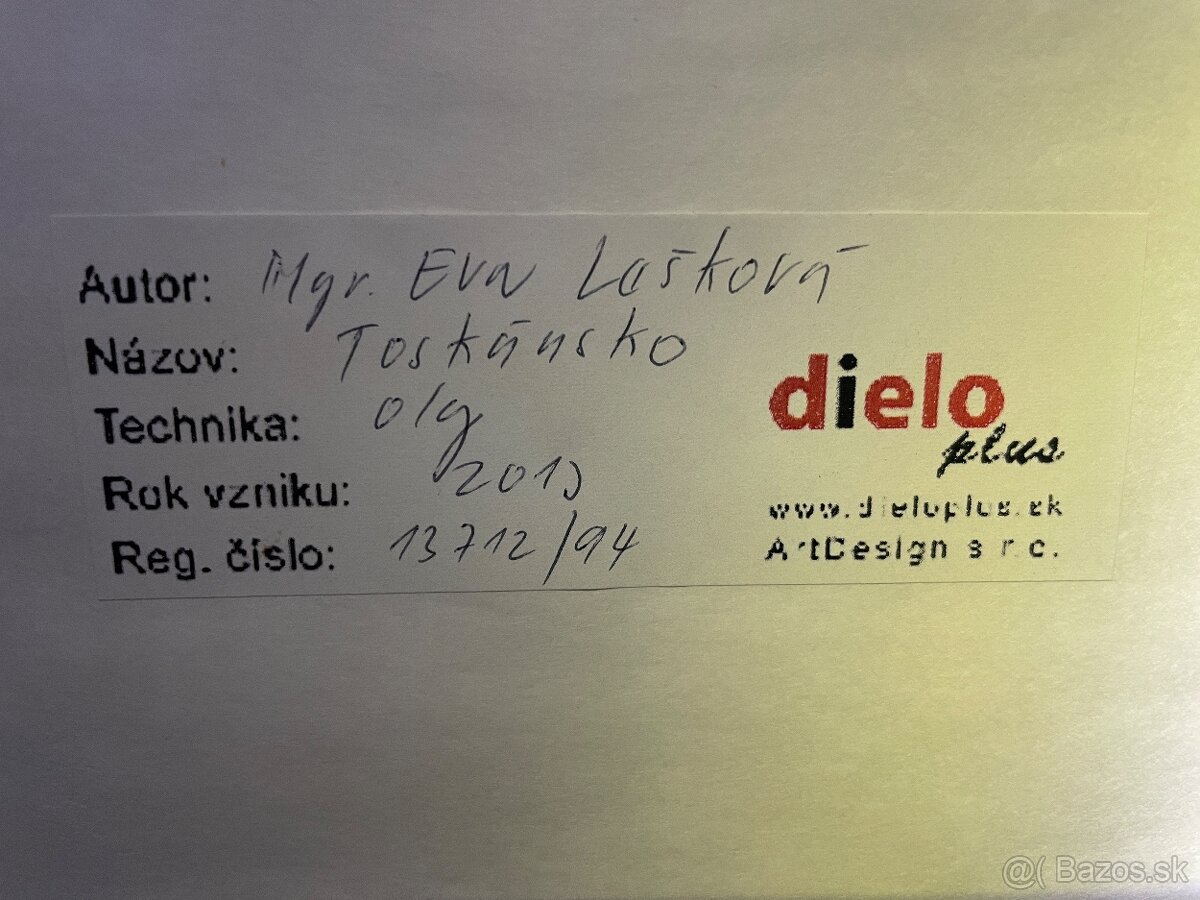 Autor: Mgr. Eva Lašková
Názov: Toskánsko
Technika: olej
Rok vzniku: 2013
Reg. číslo: 13712/94
dielo
plus
www.dieloplus.sk
ArtDesign s.r.o.
@( Bazos.sk